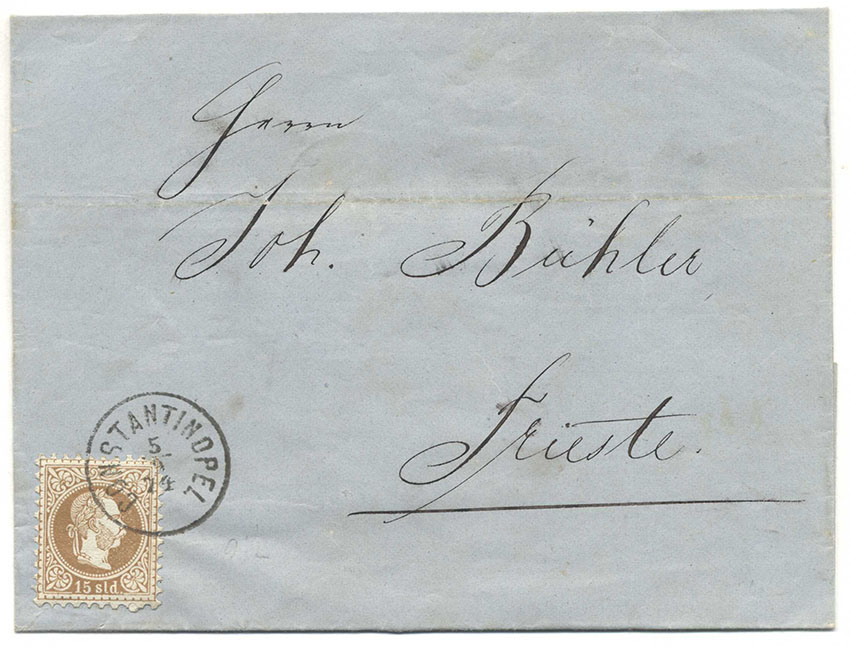 Herrn
Joh. Bühler
Trieste.
CONSTANTINOPEL
5
74
15 sld.